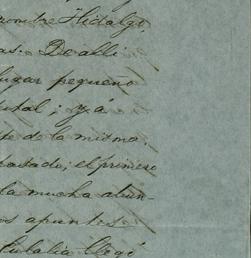 nombre Hidalgo,
as. De alli
lugar pequeño
tal; y á
de la misma.
pasado; el primero
la mucha abun-
os apuntes.
Eulalia llegó